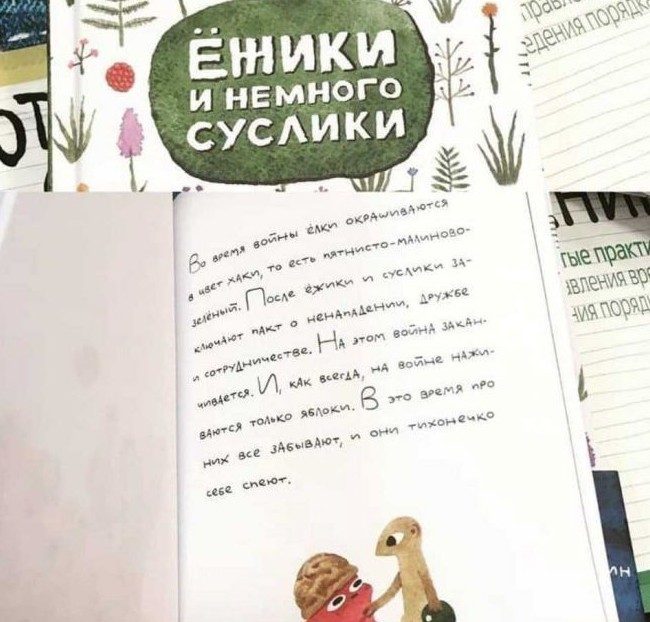 ЁЖИКИ
И НЕМНОГО
СУСЛИКИ
едения порядка
Во время войны ёлки окрашиваются
в цвет хаки, то есть пятнисто-малиново-
зелёный. После ёжики и суслики за-
ключают пакт о ненападении, дружбе
и сотрудничестве. На этом война закан-
чивается. И, как всегда, на войне нажи-
ваются только яблоки. В это время про
них все забывают, и они тихонечко
себе спеют.